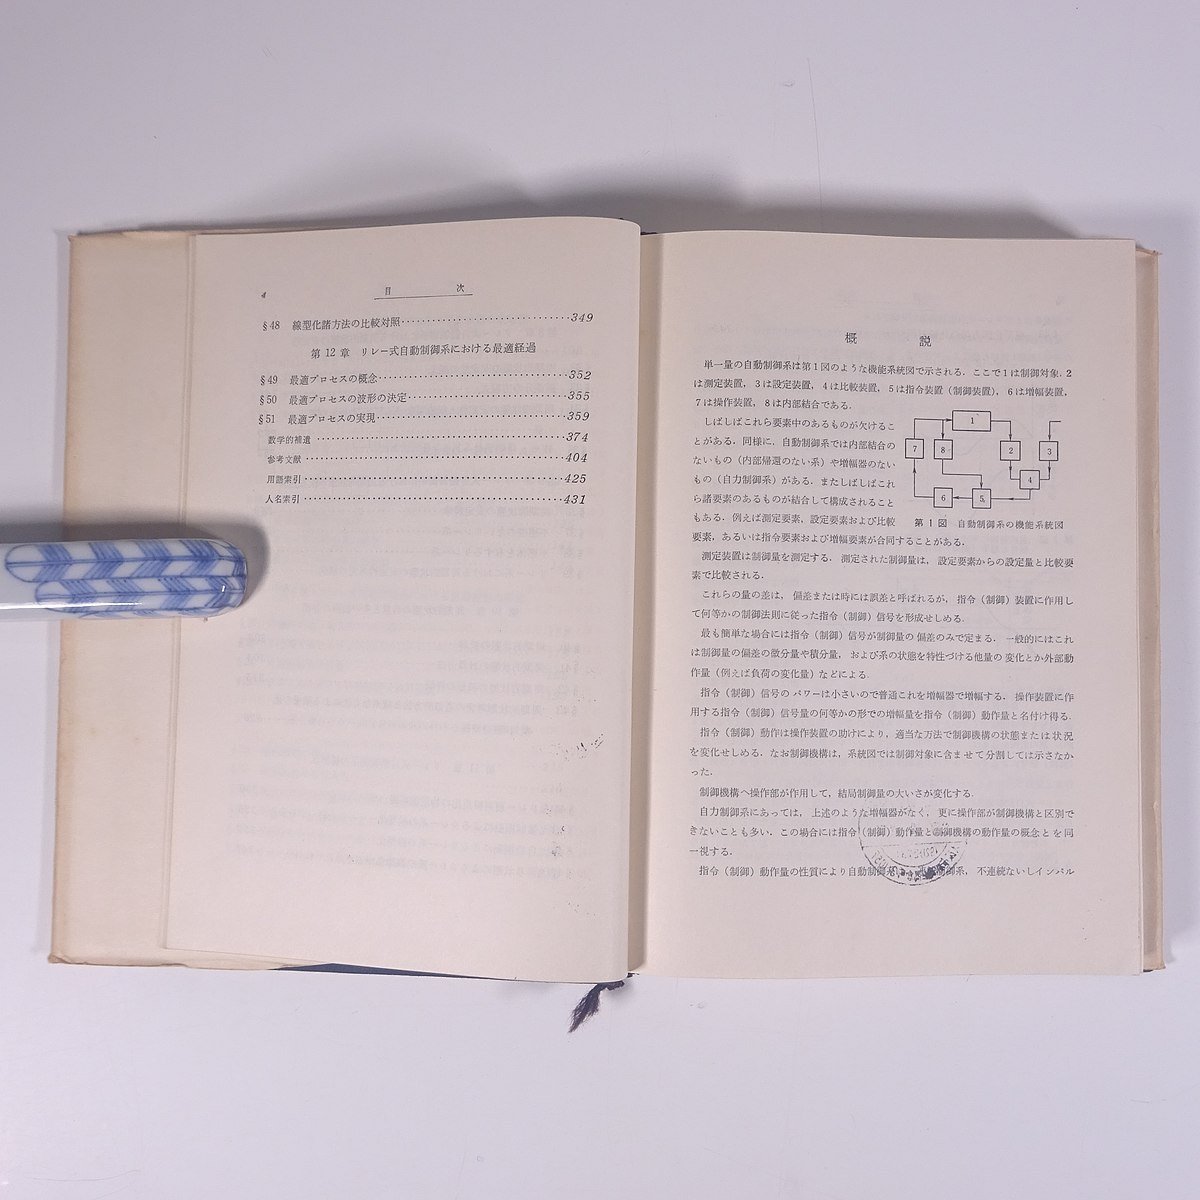 4
目 次
§48 線型化諸方法の比較対照……349
第12章 リレー式自動制御系における最適経過
§49 最適プロセスの概念……352
§50 最適プロセスの波形の決定……355
§51 最適プロセスの実現……359
数学的補遺……374
参考文献……404
用語索引……425
人名索引……431
概 説
単一量の自動制御系は第1図のような機能系統図で示される．ここで1は制御対象．2
は測定装置，3は設定装置，4は比較装置，5は指令装置（制御装置），6は増幅装置，
7は操作装置，8は内部結合である．
しばしばこれら要素中のあるものが欠けるこ
とがある．同様に，自動制御系では内部結合の
ないもの（内部帰還のない系）や増幅器のない
もの（自力制御系）がある．またしばしばこれ
ら諸要素のあるものが結合して構成されること
もある．例えば測定要素，設定要素および比較
要素，あるいは指令要素および増幅要素が合同することがある．
1
7
8
2
3
4
6
5
第1図 自動制御系の機能系統図
測定装置は制御量を測定する．測定された制御量は，設定要素からの設定量と比較要
素で比較される．
これらの量の差は，偏差または時には誤差と呼ばれるが，指令（制御）装置に作用し
て何等かの制御法則に従った指令（制御）信号を形成せしめる．
最も簡単な場合には指令（制御）信号が制御量の偏差のみで定まる．一般的にはこれ
は制御量の偏差の微分量や積分量，および系の状態を特性づける他量の変化とか外部動
作量（例えば負荷の変化量）などによる．
指令（制御）信号のパワーは小さいので普通これを増幅器で増幅する．操作装置に作
用する指令（制御）信号量の何等かの形での増幅量を指令（制御）動作量と名付け得る．
指令（制御）動作は操作装置の助けにより，適当な方法で制御機構の状態または状況
を変化せしめる．なお制御機構は，系統図では制御対象に含ませて分割しては示さなか
った．
制御機構へ操作部が作用して，結局制御量の大いさが変化する．
自力制御系にあっては，上述のような増幅器がなく，更に操作部が制御機構と区別で
きないことも多い．この場合には指令（制御）動作量と制御機構の動作量の概念とを同
一視する．
指令（制御）動作量の性質により自動制御系は 御系，不連続ないしインパル